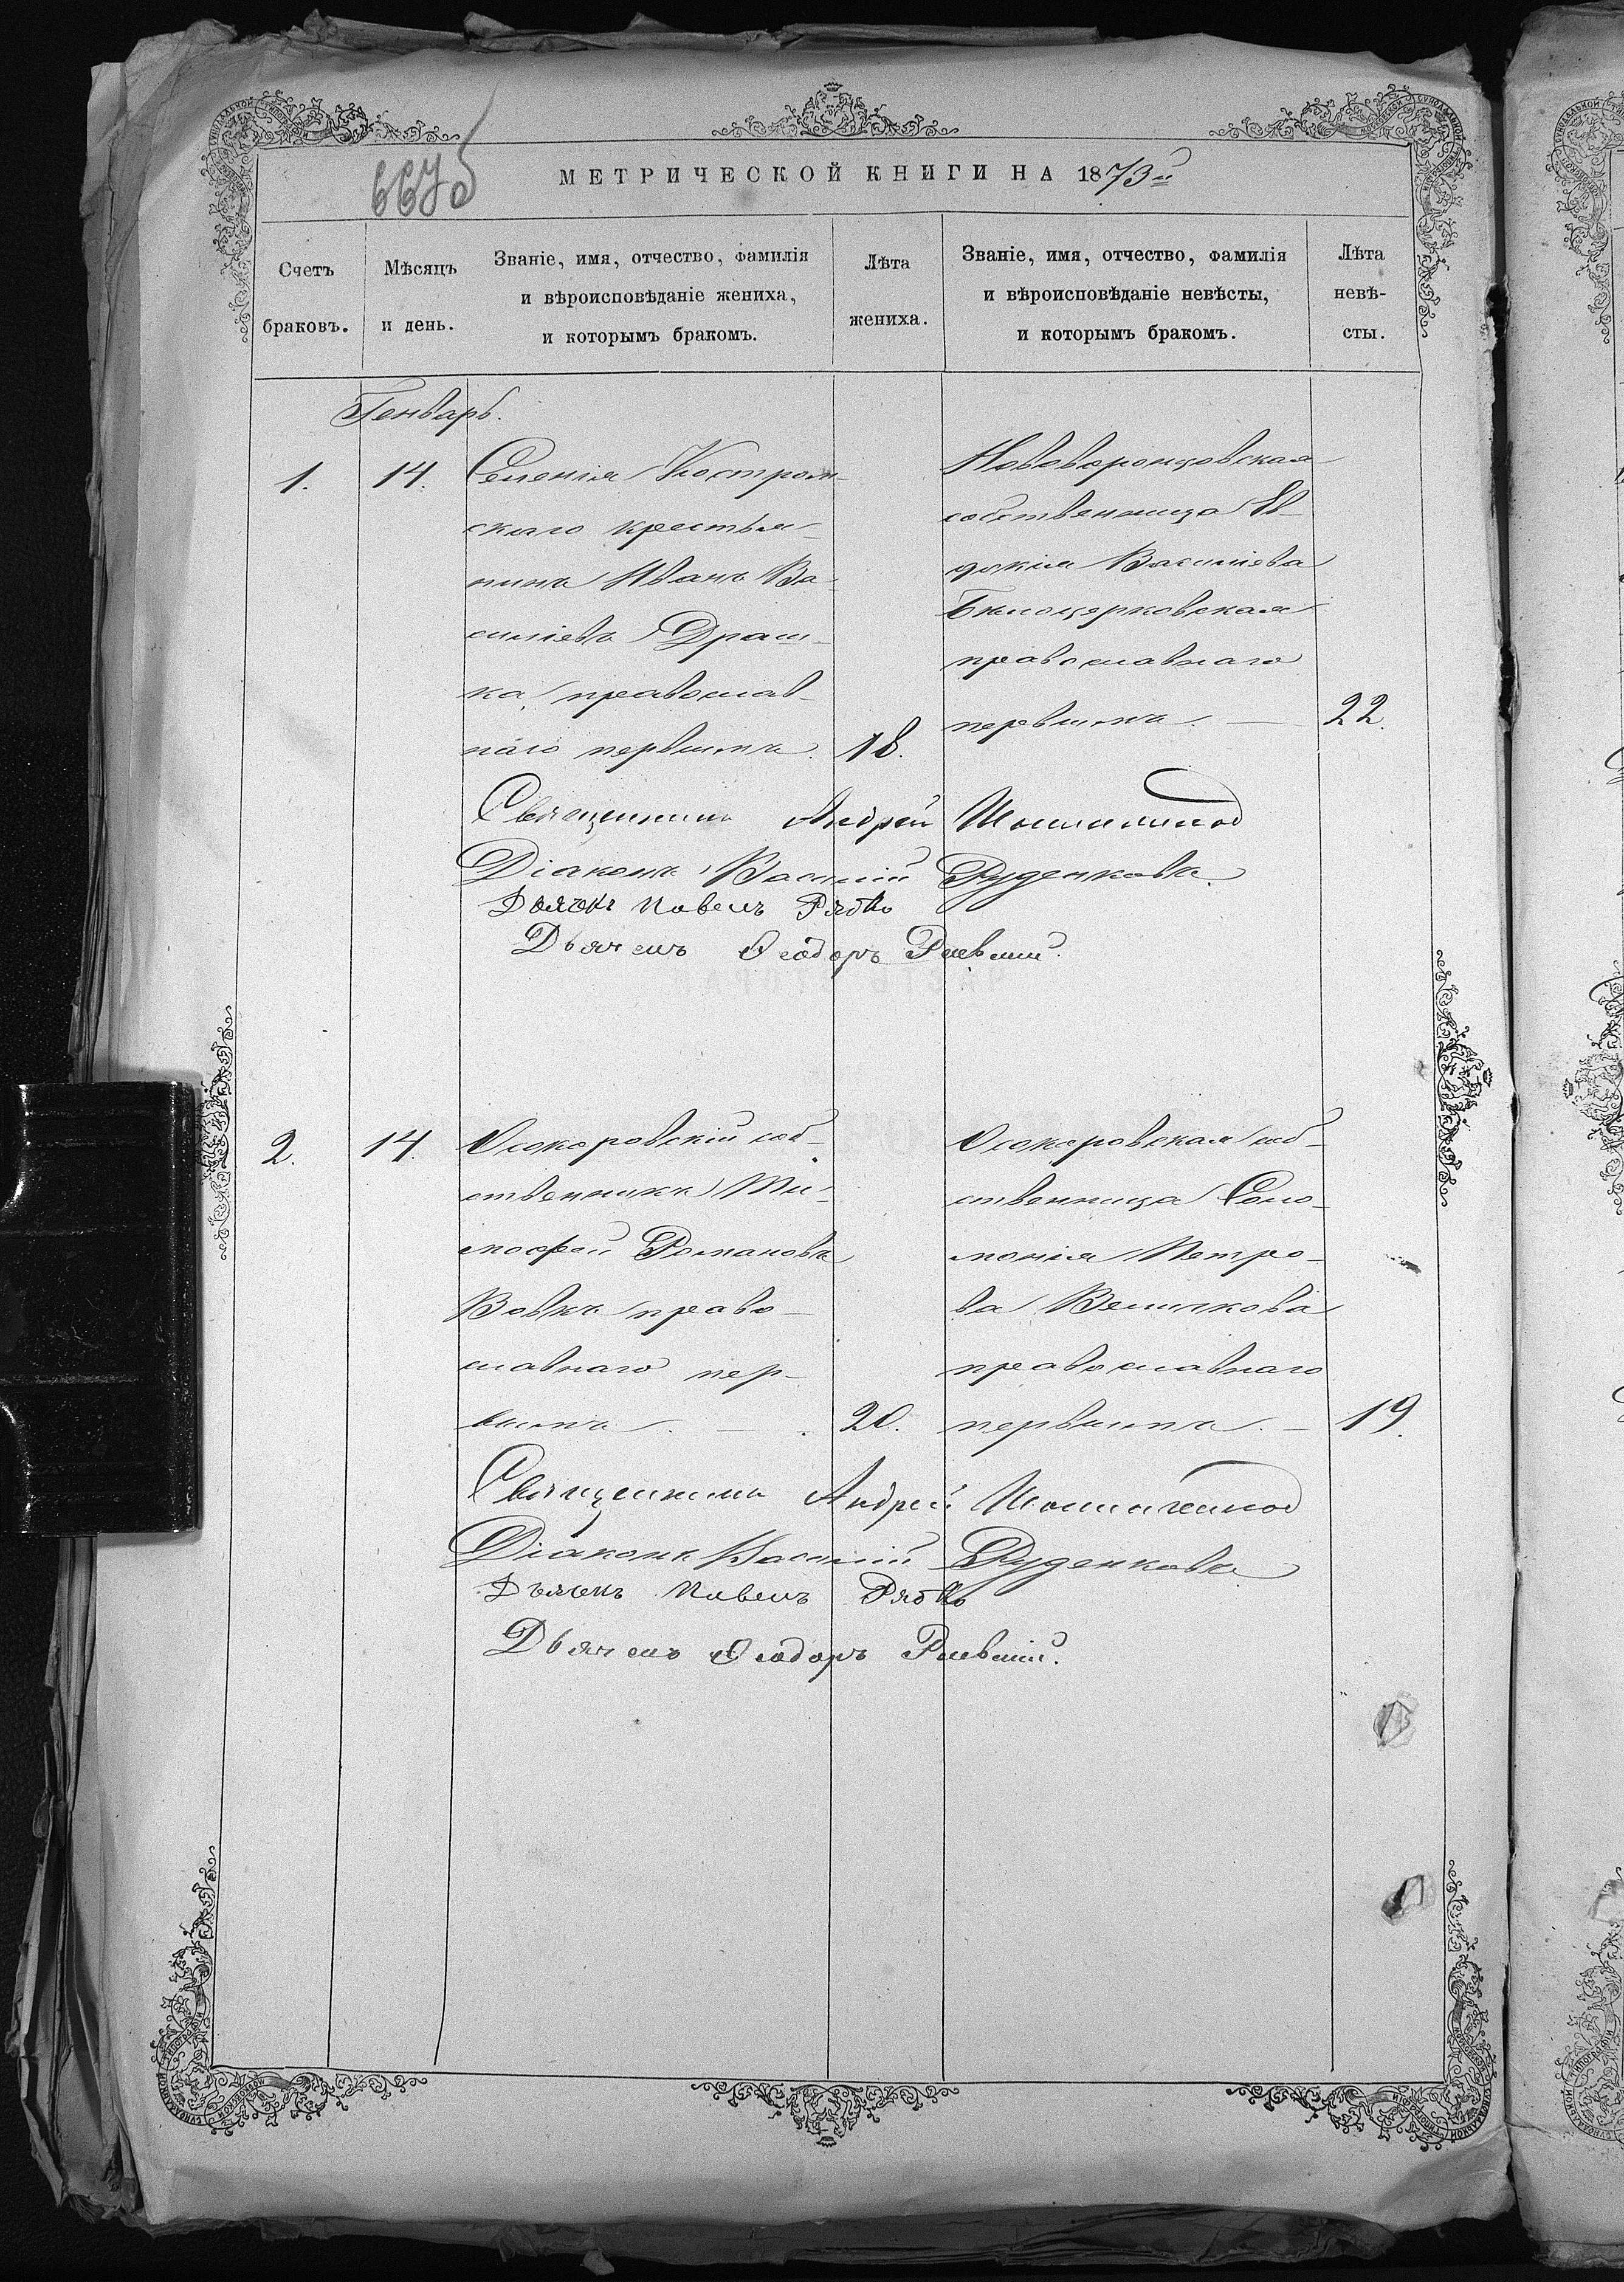 667 об
МЕТРИЧЕСКОЙ КНИГИ НА 1873й
Счетъ браковъ.
Мѣсяцъ и день.
Званіе, имя, отчество, фамилія
и вѣроисповѣданіе жениха,
и которымъ бракомъ.
Лѣта
жениха.
Званіе, имя, отчество, фамилія
и вѣроисповѣданіе невѣсты,
и которымъ бракомъ.
Лѣта
невѣ-
сты.
Генварь.
1.
14.
Селенія Костром-
скаго крестья-
нинъ Иванъ Ва-
силіевъ Драш-
ка, православ-
наго первымъ.
18.
Нововоронцовская
собственница Ев-
докія Василіева
Бѣлоцерковская
православнаго
первымъ. —
22.
Священникъ Андрей
Діаконъ Василій Руденковъ
Дьячекъ Павелъ Рябко
Дьячекъ Ѳеодоръ Раевскій.
2.
14.
Осокоровскій соб-
ственникъ Ти-
моѳей Романовъ
Вовкъ право-
славнаго пер-
вымъ. — .
20.
Осокоровская соб-
ственница Соло-
монія Петро-
ва Величкова
православнаго
первымъ. —
19.
Священникъ Андрей
Діаконъ Василій Руденковъ
Дьячекъ Павелъ Рябко
Дьячекъ Ѳеодоръ Раевскій.